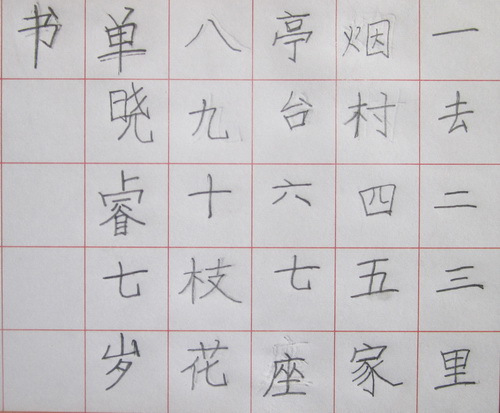 一去二三里
烟村四五家
亭台六七座
八九十枝花
单晓睿七岁
书